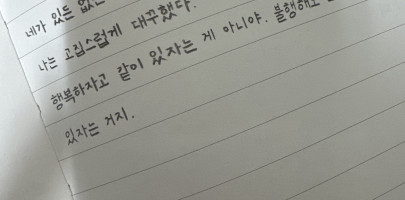 네가 있든 없
나는 고집스럽게 대꾸했다.
행복하자고 같이 있자는 게 아니야. 불행해도
있자는 거지.